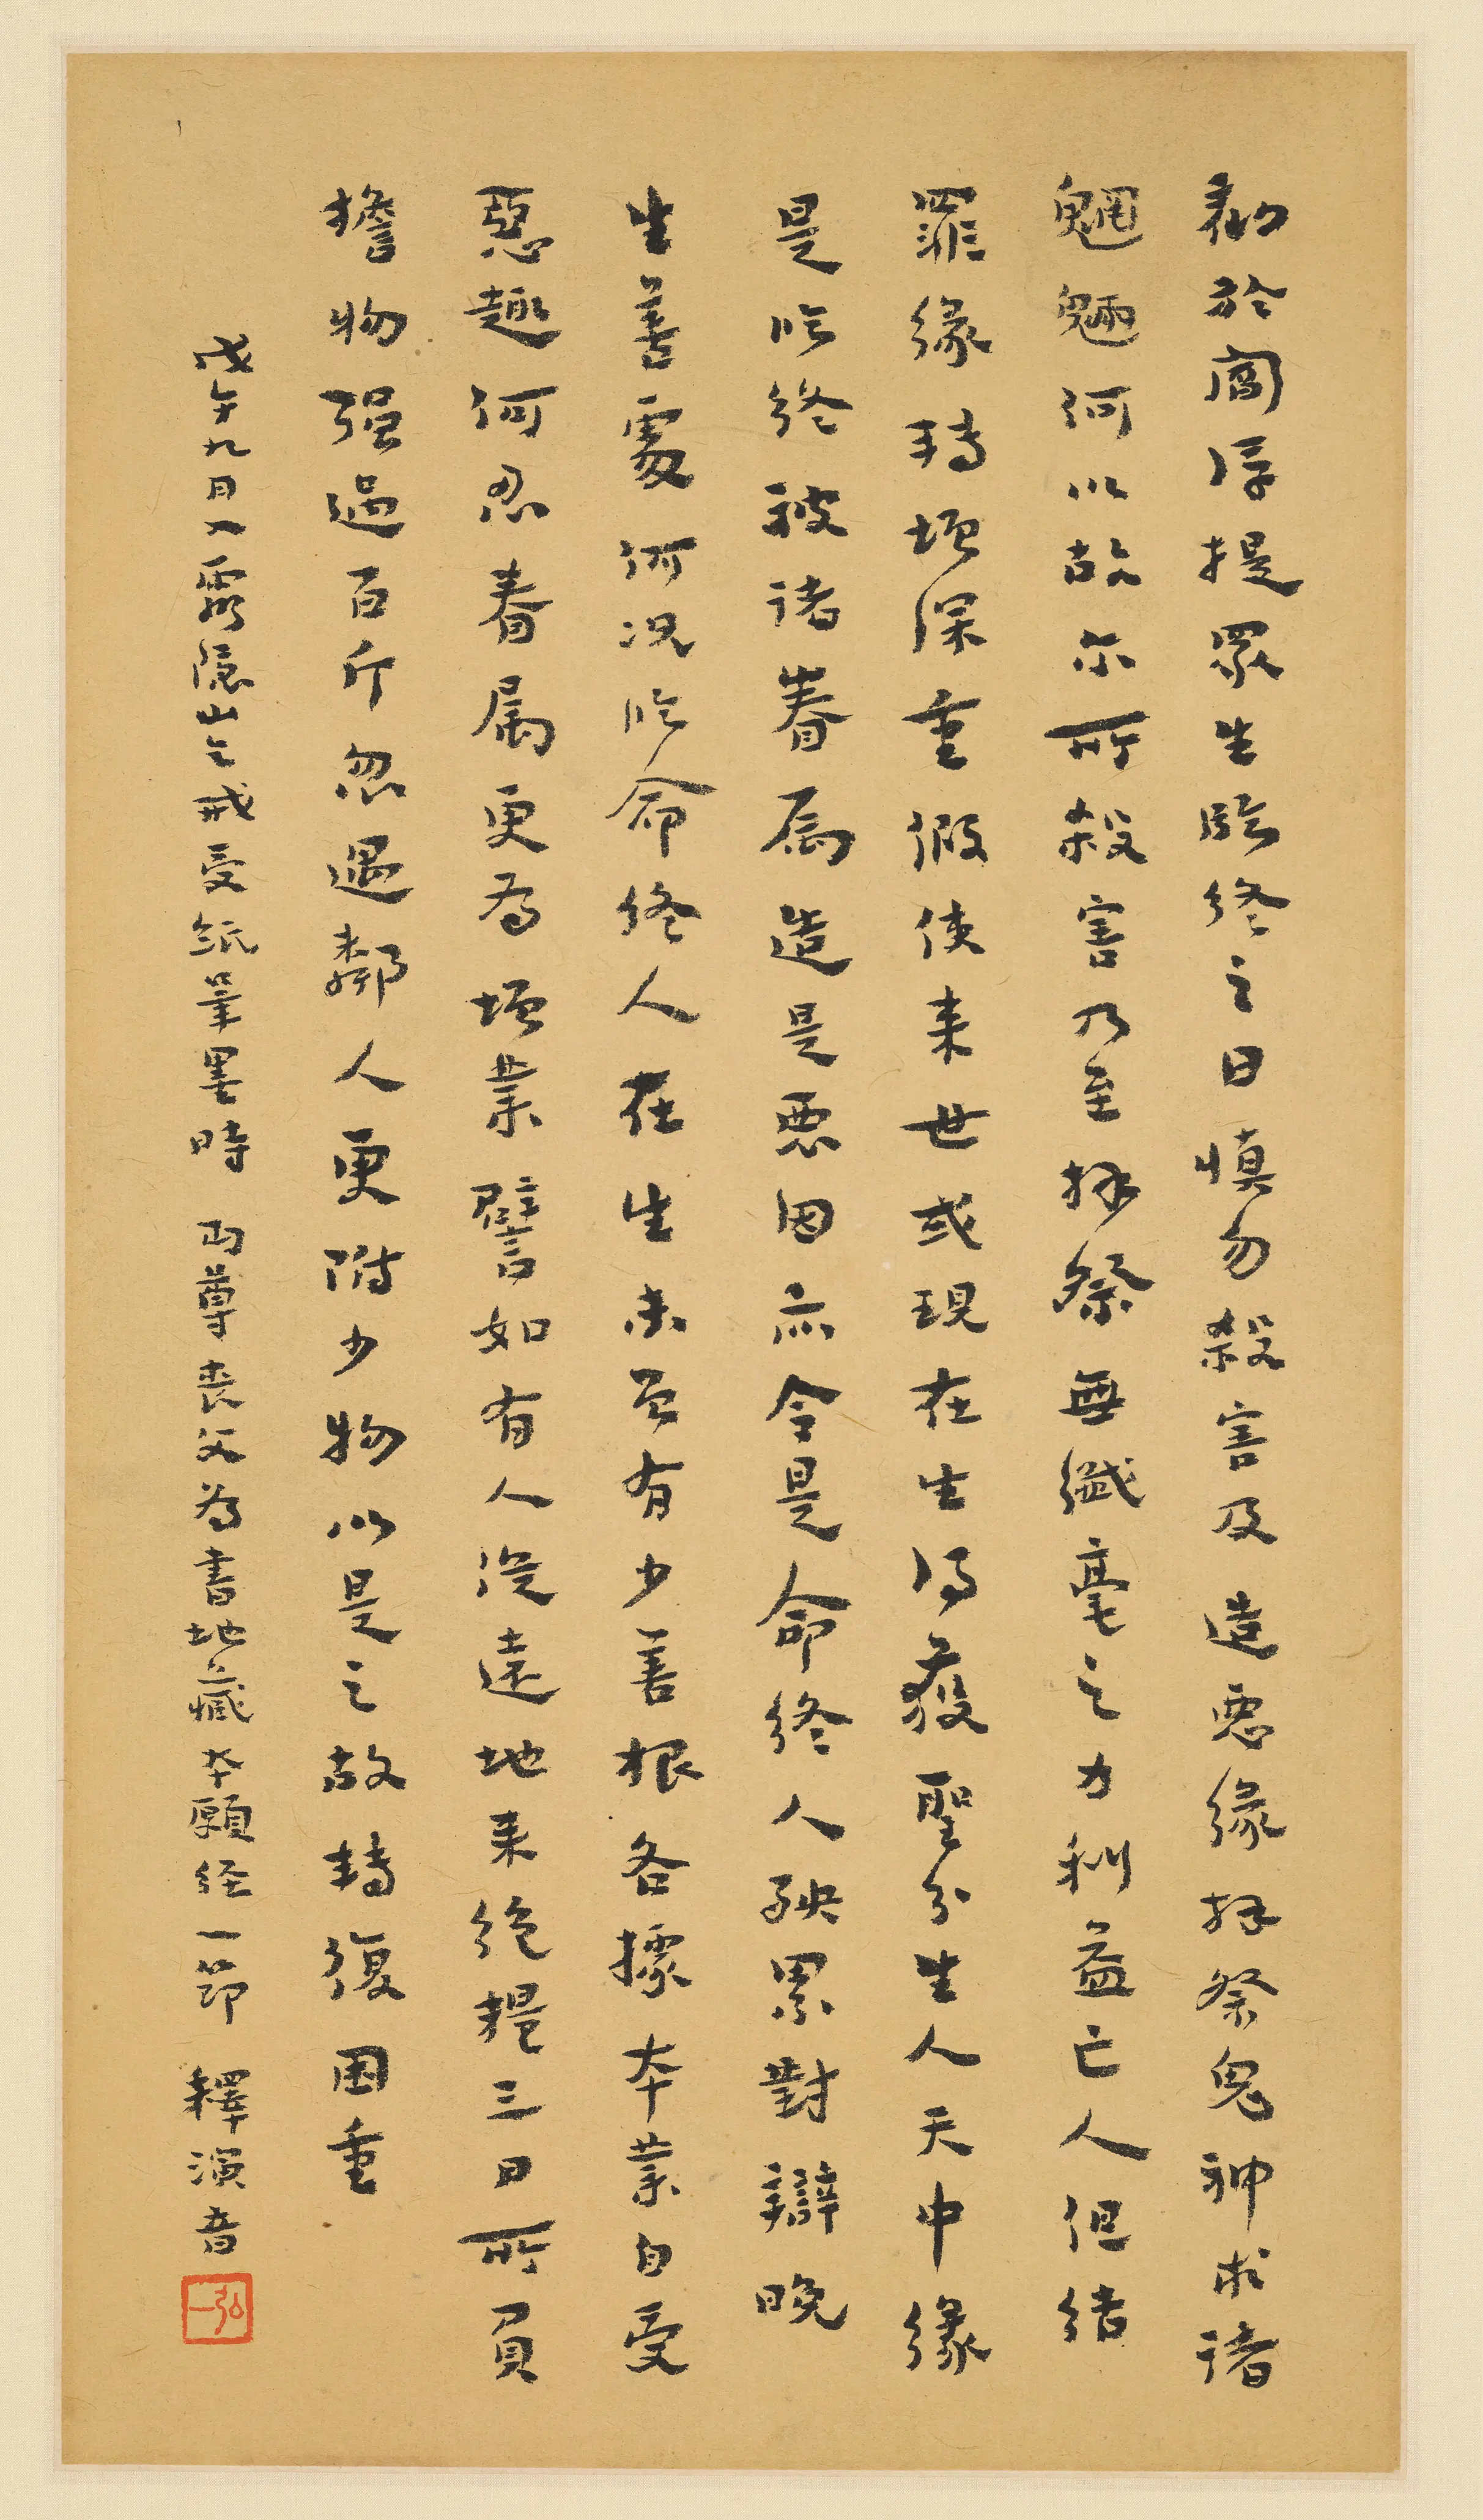 勸於閻浮提眾生臨終之日慎勿殺害及造惡緣拜祭鬼神求諸
魍魎何以故尒所殺害乃至拜祭無纖毫之力利益亡人但結
罪緣轉增深重假使来世或現在生得獲聖分生人天中緣
是臨終被諸眷屬造是惡因亦令是命終人殃累對辯晚
生善處何況臨命終人在生未曾有少善根各據本業自受
惡趣何忍眷屬更為增業譬如有人從遠地来絕糧三日所負
擔物强過百斤忽遇鄰人更附少物以是之故轉復困重
戊午九月入靈隱山乞戒受紙筆墨時 丏尊喪父為書地藏本願经一節 釋演音
弘一